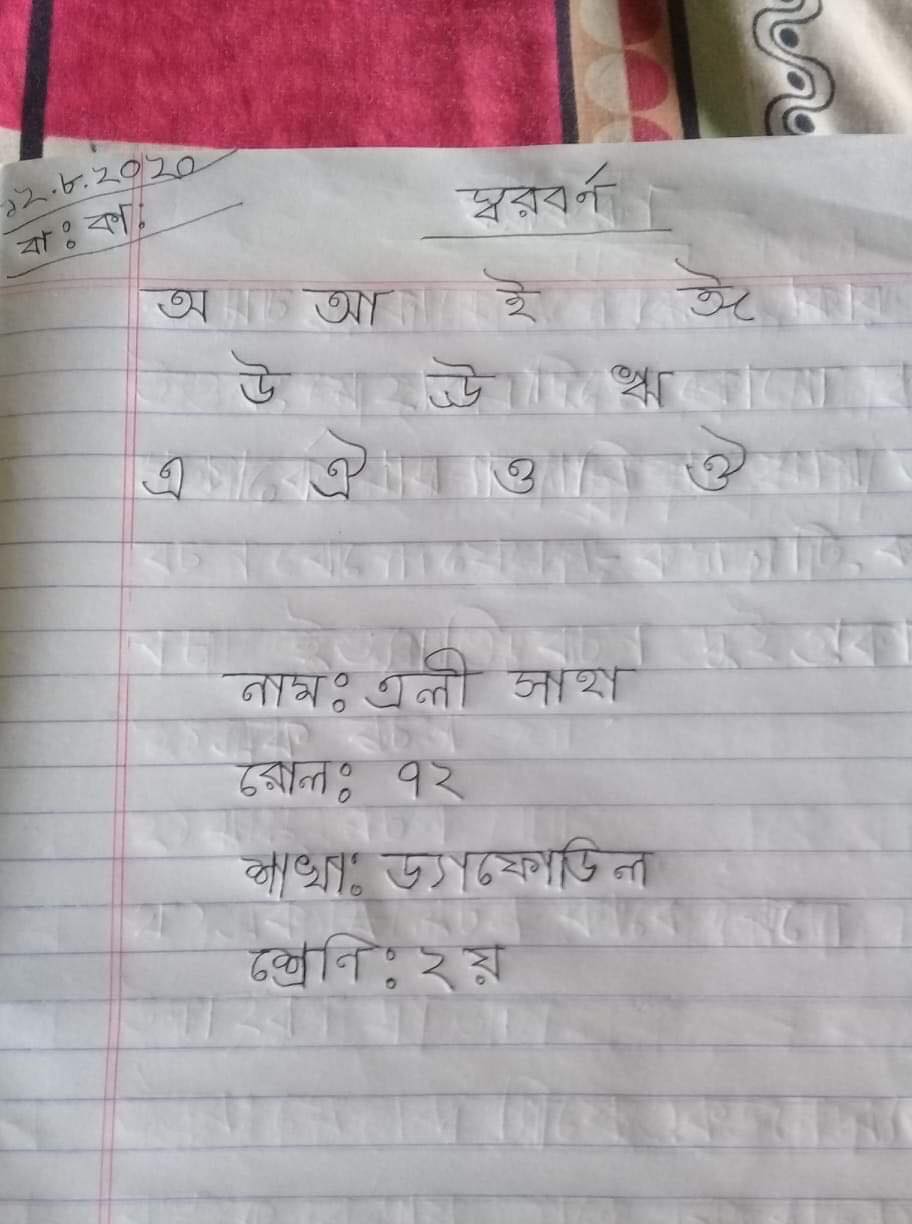 ১২.৮.২০২০
বা: কা:
স্বরবর্ণ
অ আ ই ঈ
উ ঊ ঋ
এ ঐ ও ঔ
নাম: এলী সাহা
রোল: ৭২
শাখা: ড্যাফোডিল
শ্রেনি: ২য়